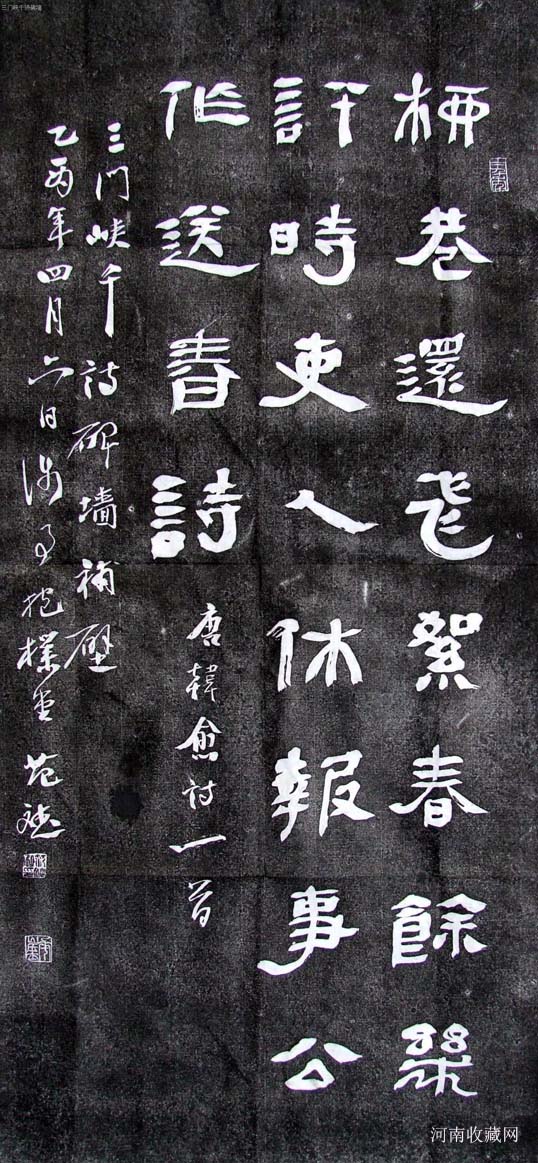 三门峡千诗碑墙
桺巷還飛絮春餘幾
許時吏人休報事公
作送春詩
唐韓愈詩一首
三門峡千詩碑墙補壁
乙酉年四月六日抱樸堂范
河南收藏网